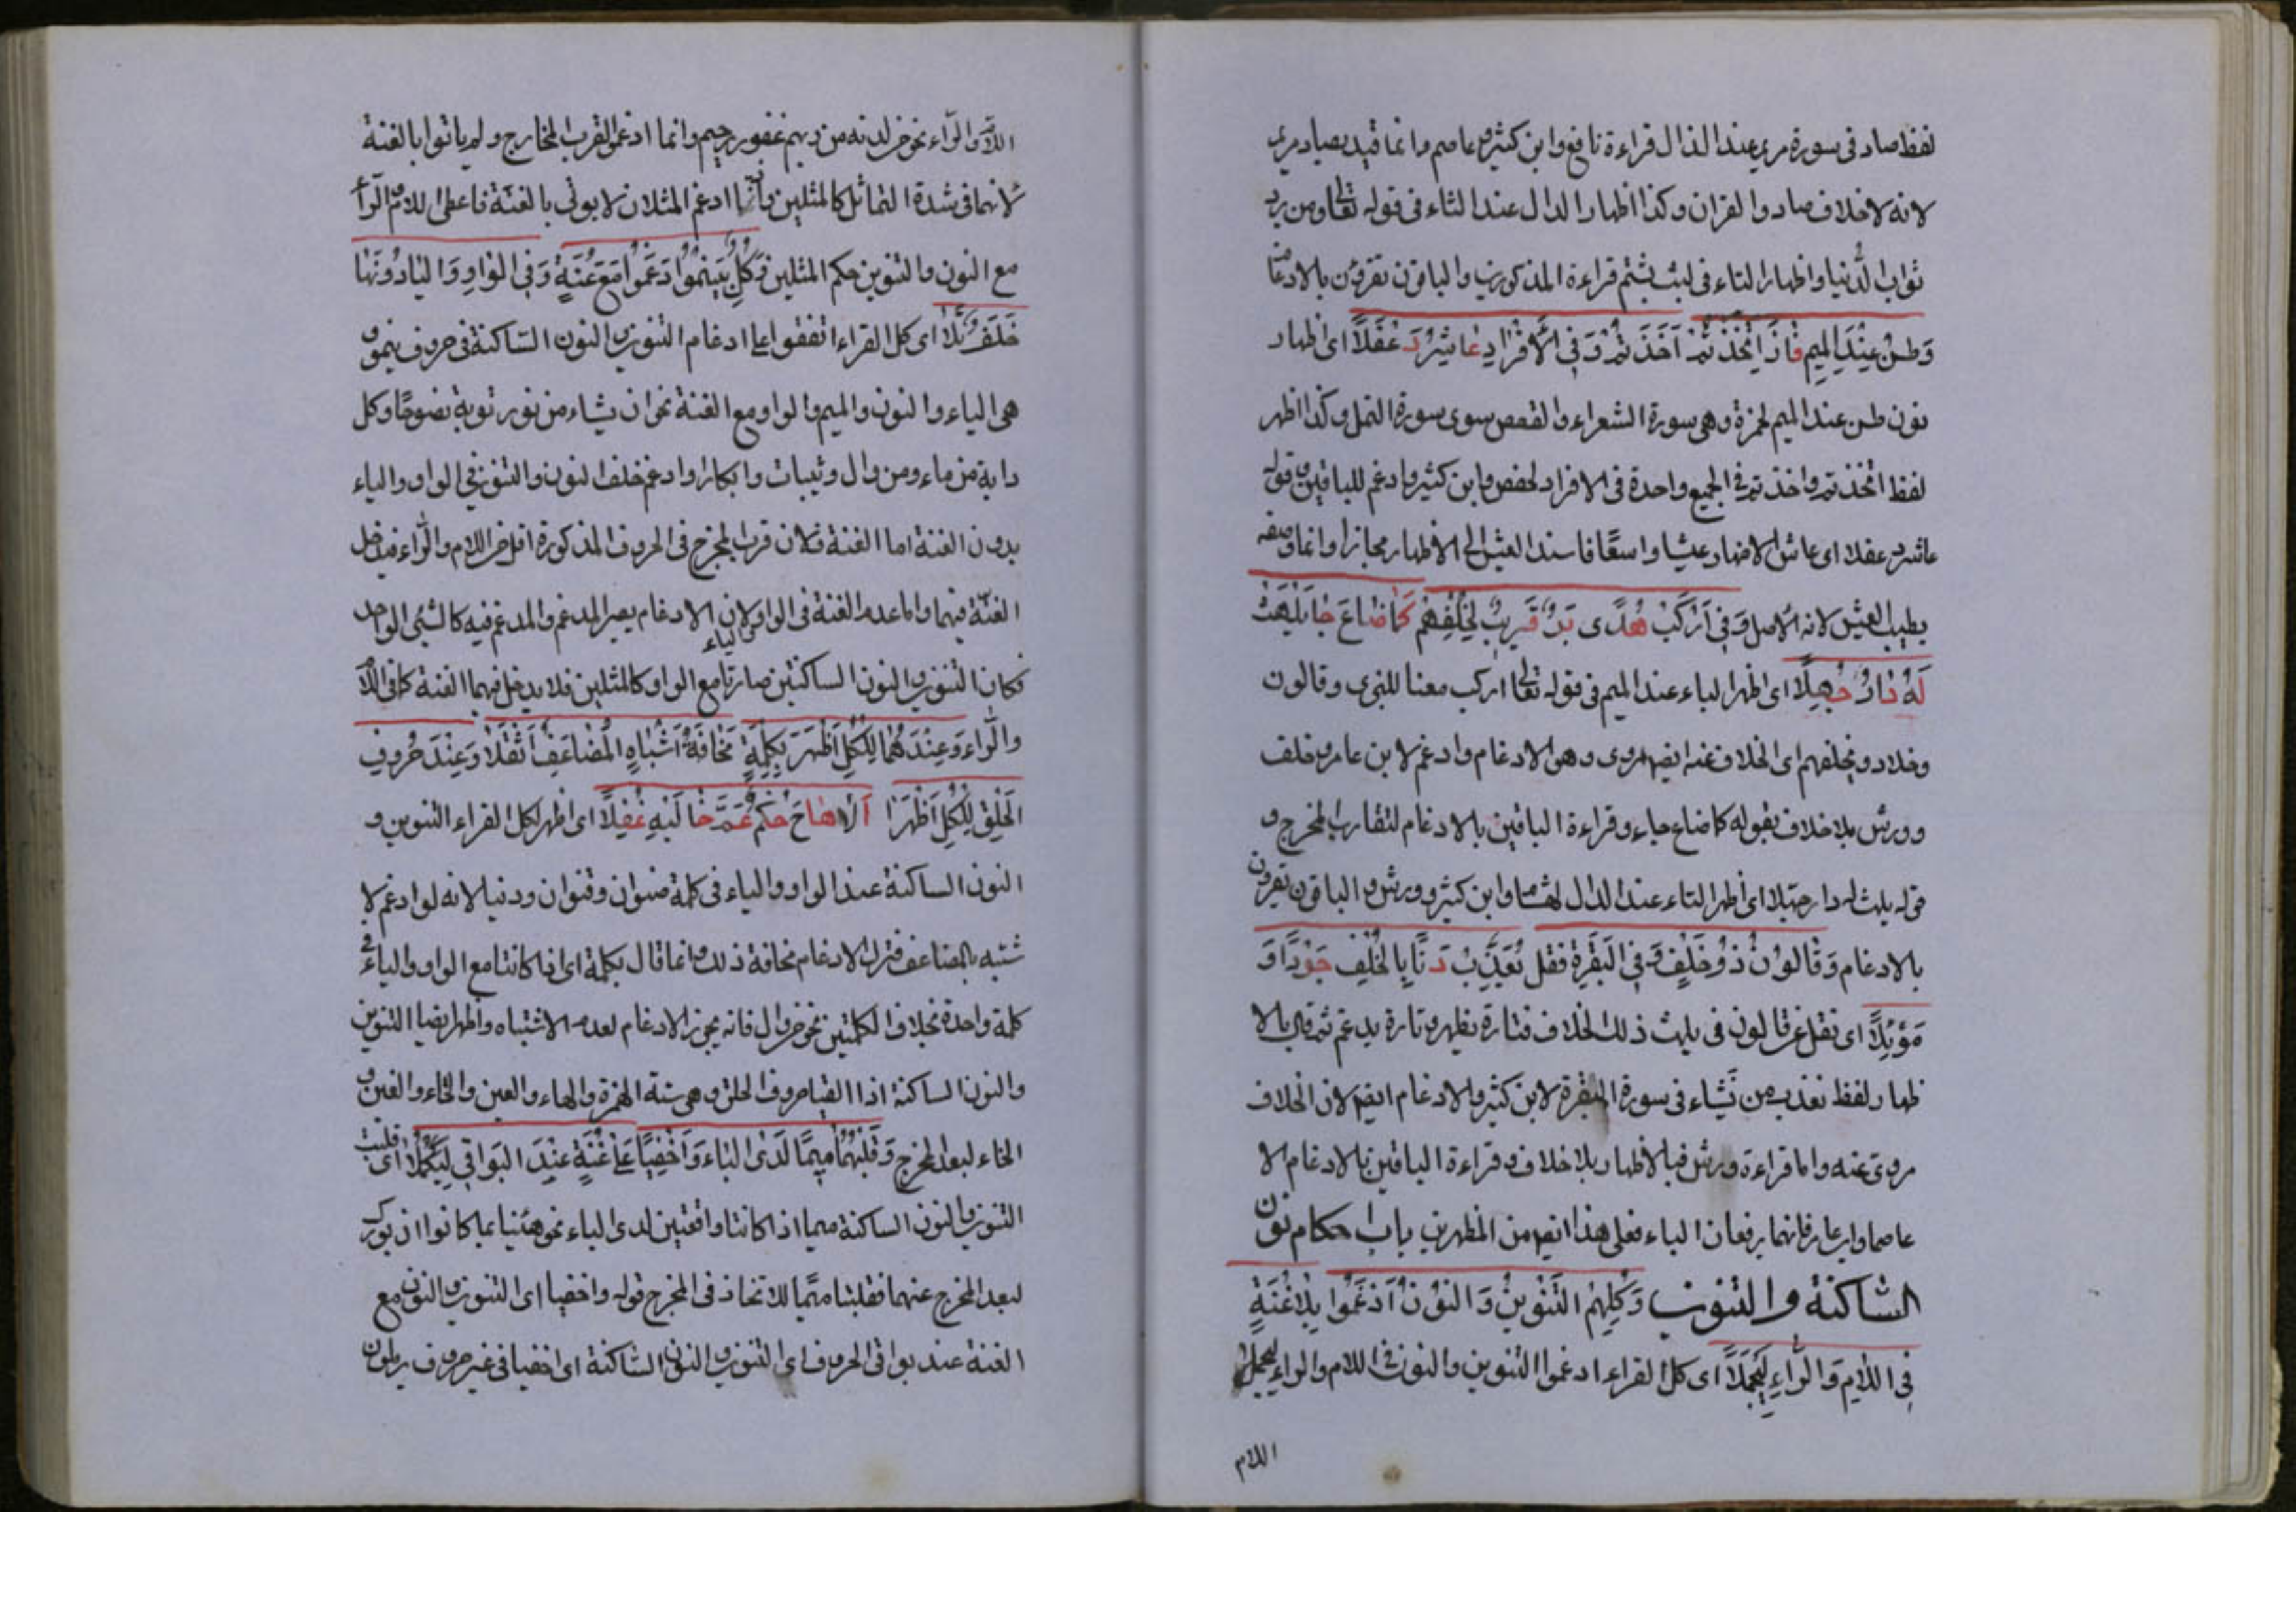 لفظ صاد فى سورة مريم عند الذال قراءة نافع وابن كثير وعاصم وانما قيد بصاد مريم
لانه لا خلاف صاد والقران وكذا اظهار الدال عند الثاء فى قوله تعالى ومن يرد
ثواب الدنيا واظهار الثاء فى لبث لبثتم قراءة المذكورين والباقون تقرؤن بالادغام
وَطس عِنْدَ الْمِيمِ فَازَ اتَّخَذْتُمْ اَخَذْتُمْ وَفِى الْأَفْرَادِ عَاشَرَ دَغْفَلًا اى اظهار
نون طس عند الميم لحمزة وهى سورة الشعراء والقصص سوى سورة النمل وكذا اظهر
لفظ اتخذتم واخذتم فى الجمع واحدة فى الافراد لحفص وابن كثير وادغم للباقين وقوله
عاشر دغفلا اى عاش الاضهار عيشا واسعًا فاسند العيش الى الاظهار مجازا وانما وصفه
بطيب العيش لانه الاصل وَفِى اَرْكَبْ هُدًى بَرٍّ قَرِيبٍ بِخُلْفِهِمْ كَمَا ضَاعَ جَا يَلْهَثْ
لَهُ دَارِ جُهِّلًا اى اظهر الباء عند الميم فى قوله تعالى اركب معنا للبزى وقالون
وخلاد وبخلفهم اى الخلاف عنه ايضا مروى وهو الادغام وادغم لابن عامر وخلف
وورش بلا خلاف بقوله كما ضاع جاء وقراءة الباقين بالادغام لتقارب المخرج و
قوله يلهث له دار جهلا اى اظهر الثاء عند الذال لهشام وابن كثير وورش والباقون تقرؤن
بالادغام وَقَالُونُ ذُو خُلْفٍ وَفِى الْبَقَرَةْ فَقُلْ يُعَذِّبْ دَنَا بِالْخُلْفِ جَوْدًا وَ
مَوْبِلًا اى نقل عن قالون فى يلهث ذلك الخلاف فتارة يظهر وتارة يدغم ثم قال بالا
ظهار لفظ نعذب من نَّشاء فى سورة البقرة لابن كثير والادغام ايضا لان الخلاف
مروى عنه واما قراءة ورش فبالاظهار بلا خلاف وقراءة الباقين بالادغام الا
عاصما وابن عامر فانهما يرفعان الباء فعلى هذا ايضا من المظهرين باب احكام نون
الساكنة والتنوين وَكُلُّهُمُ التَّنْوِينَ وَالنُّونَ اَدْغَمُوا بِلَا غُنَّةٍ
فِى اللَّامِ وَالرَّاءِ لِيَجْمُلَا اى كل القراء ادغموا التنوين والنون فى اللام والراء ليجملا
اللام
اللام والراء نحو خير لدنه من ربهم غفور رحيم وانما ادغموا لقرب المخارج ولم ياتوا بالغنة
لانهما فى شدة التماثل كالمثلين فانما ادغم المثلان لا يوتى بالغنة فاعطى للام والراء
مع النون والتنوين حكم المثلين وَكُلٌّ بِيَنْمُو اَدْغَمُوا مَعَ غُنَّةٍ وَفِى الْوَاوِ وَالْيَا دُونَهَا
خَلَفٌ تَلَا اى كل القراء اتفقوا على ادغام التنوين والنون الساكنة فى حروف ينمو و
هى الياء والنون والميم والواو مع الغنة نحو ان يشاء من نور توبة نصوحًا وكل
دابة من ماء ومن وال وثيبات وابكارا وادغم خلف النون والتنوين فى الواو والياء
بدون الغنة اما الغنة فلان قرب المخرج فى الحروف المذكورة اقل من اللام والراء فيدخل
الغنة فيهما واما عدم الغنة فى الواو والياء لان الادغام يصير المدغم والمدغم فيه كالشئ الواحد
فكان التنوين والنون الساكنتين صارتا مع الواو كالمثلين فلا يدخل فيهما الغنة كما فى اللام
والراء وَعِنْدَهُمَا لِلْكُلِّ اَظْهِرْ بِكِلْمَةٍ مَخَافَةَ اَشْبَاهِ الْمُضَاعَفِ اَثْقَلَا وَعِنْدَ حُرُوفِ
الْحَلْقِ لِلْكُلِّ اُظْهِرَا اَلَا هَاجَ حُكْمٌ عَمَّ خَالِيهِ غُفَّلًا اى اظهر لكل القراء التنوين و
النون الساكنة عند الواو والياء فى كلمة صنوان وقنوان ودنيا لانه لو ادغم لا
شتبه بالمضاعف فترك الادغام مخافة ذلك وانما قال بكلمة اى اذا كانتا مع الواو والياء فى
كلمة واحدة بخلاف الكلمتين نحو من وال فانه يجوز الادغام لعدم الاشتباه واظهر ايضا التنوين
والنون الساكنة اذا القيا حروف الحلق وهى ستة الهمزة والهاء والعين والحاء والغين و
الخاء لبعد المخرج وَقَلْبُهُمَا مِيمًا لَدَى الْبَاءِ وَاَخْفِيَا عَلَى غُنَّةٍ عِنْدَ الْبَوَاقِى لِيَكْمُلَا اى قلبت
التنوين والنون الساكنة ميما اذا كانتا واقعتين لدى الباء نحو هنيئا بما كانوا ان بورك
لبعد المخرج عنهما فقلبتا ميمًا للاتحاد فى المخرج قوله واخفيا اى التنوين والنون مع
الغنة عند بواقى الحروف اى التنوين والنون الساكنة اى اخفيا فى غير حروف يرملون